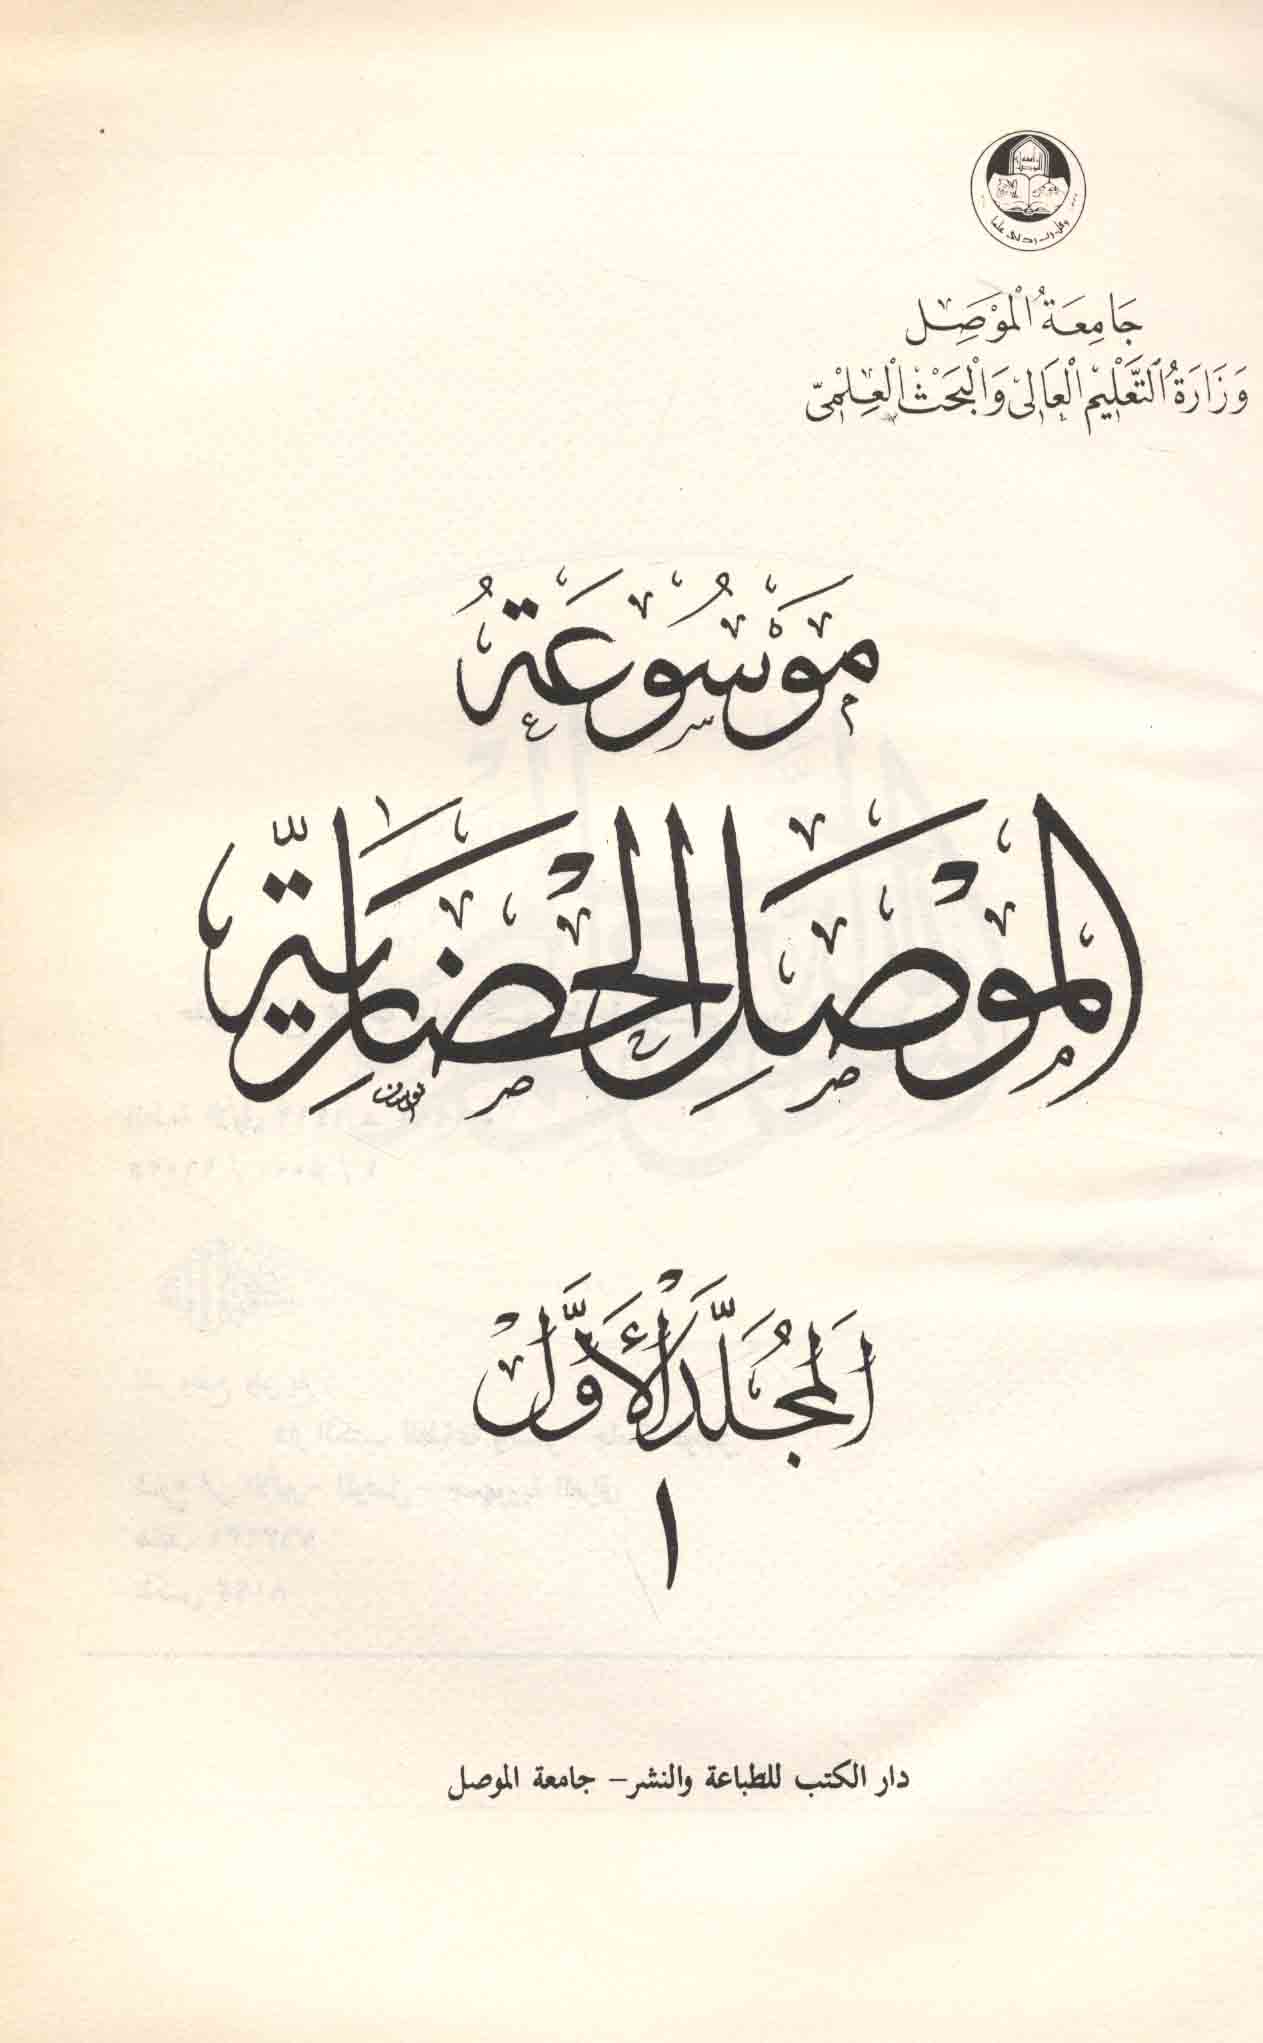 وقل رب زدني علما
جَامِعَةُ الْمَوْصِل
وَزَارَةُ التَّعْلِيمِ الْعَالِي وَالْبَحْثِ الْعِلْمِيّ
مَوْسُوعَةُ
الْمَوْصِلِ الْحَضَارِيَّة
اَلْمُجَلَّدُ الْأَوَّلْ
١
دار الكتب للطباعة والنشر – جامعة الموصل